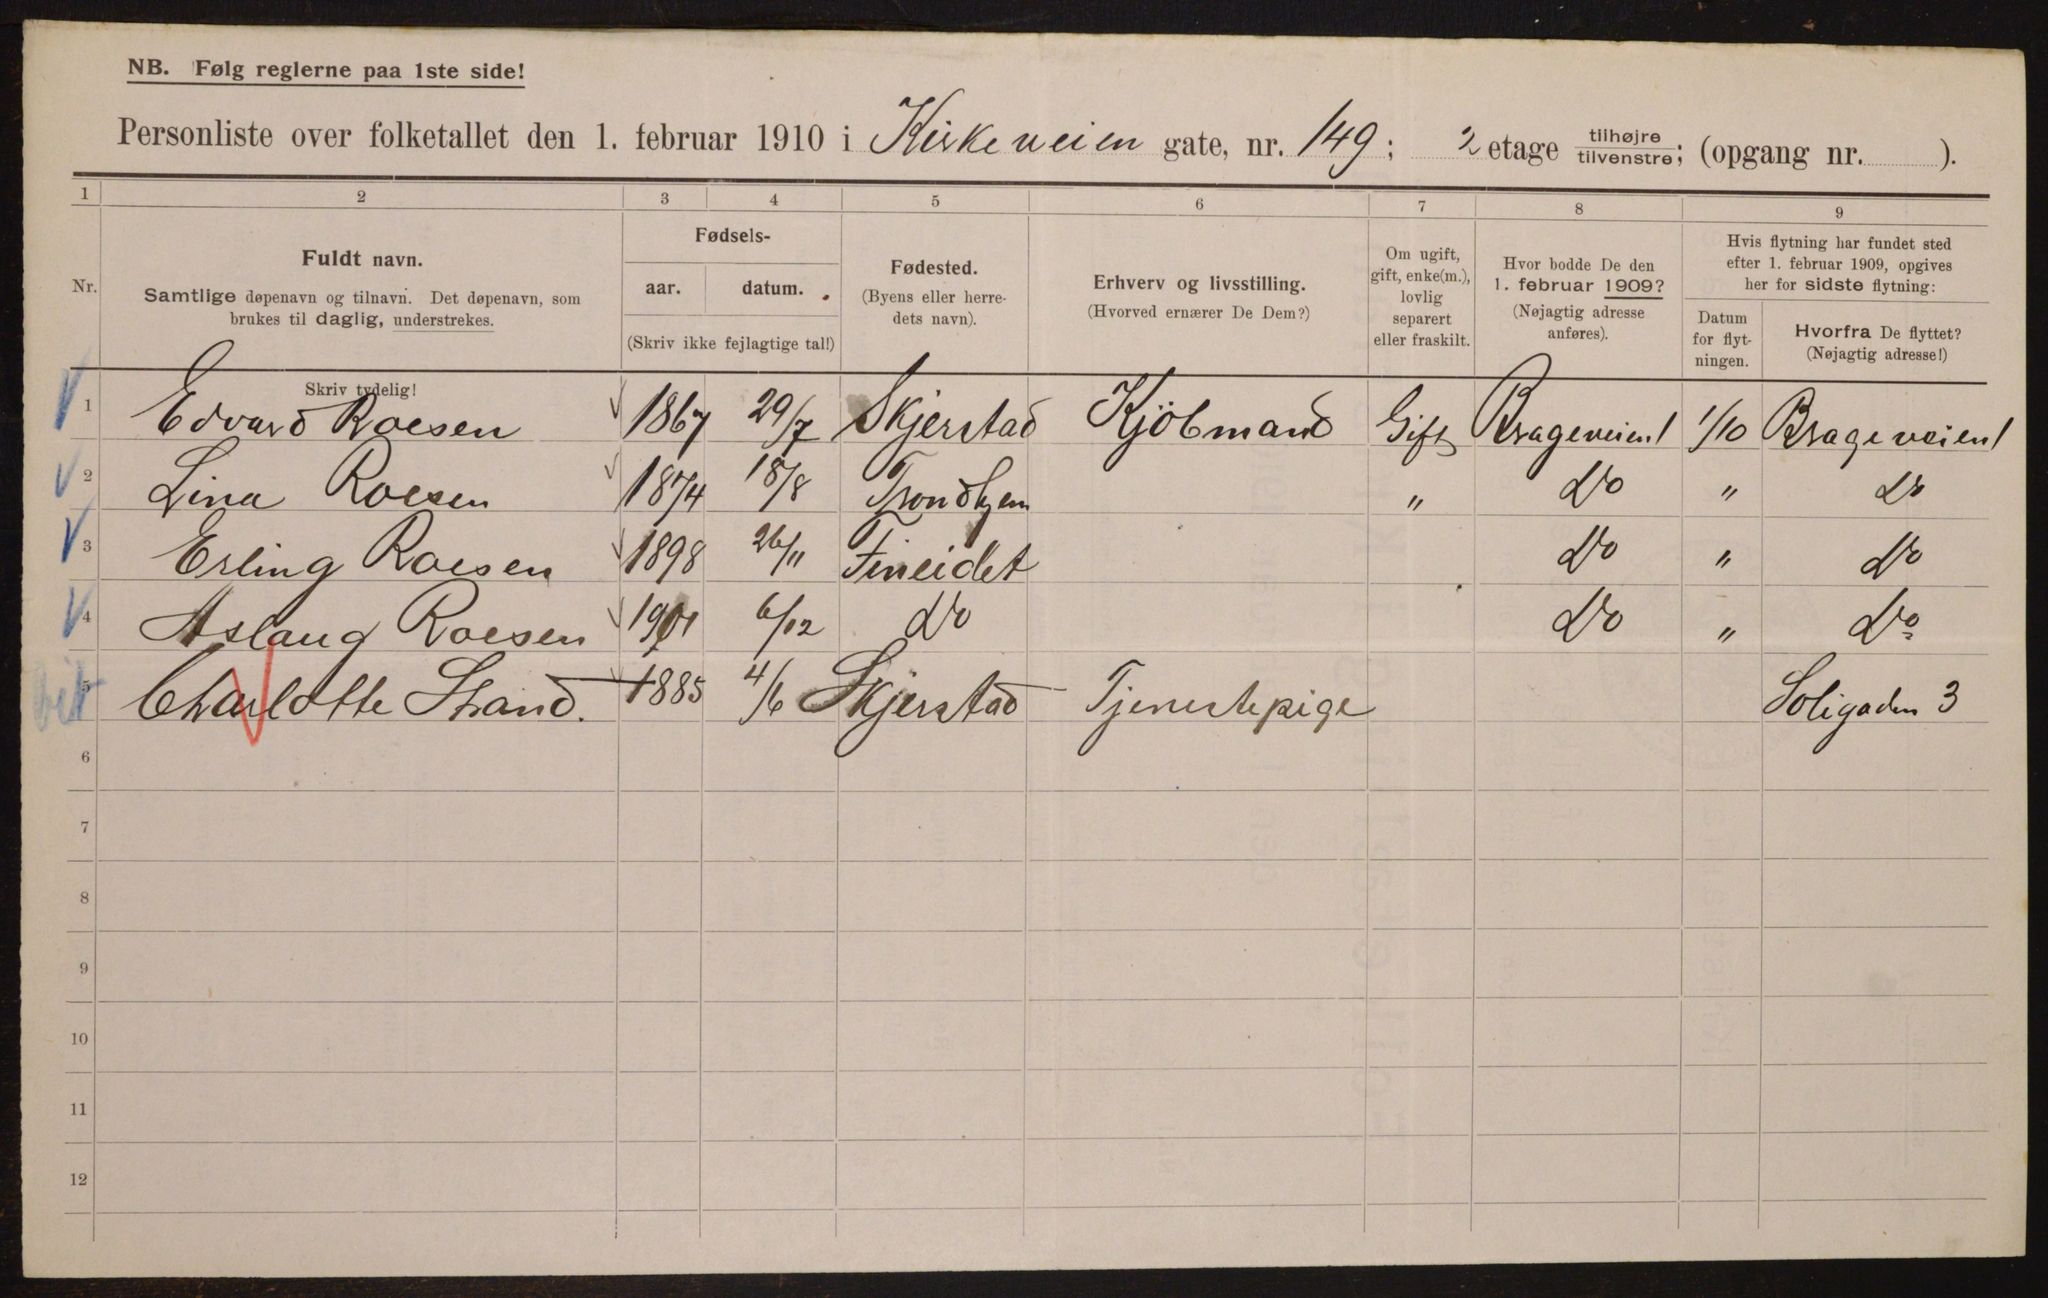 NB. Følg reglerne paa 1ste side!
Personliste over folketallet den 1. februar 1910 i Kirkeveien gate, nr. 149; 2 etage tilhøjre/tilvenstre; (opgang nr. ).
1 2 3 4 5 6 7 8 9
Nr.
Fuldt navn.
Samtlige døpenavn og tilnavn. Det døpenavn, som
brukes til daglig, understrekes.
Skriv tydelig!
Fødsels-
aar. datum.
(Skriv ikke fejlagtige tal!)
Fødested.
(Byens eller herre-
dets navn).
Erhverv og livsstilling.
(Hvorved ernærer De Dem?)
Om ugift,
gift, enke(m.),
lovlig
separert
eller fraskilt.
Hvor bodde De den
1. februar 1909?
(Nøjagtig adresse
anføres).
Hvis flytning har fundet sted
efter 1. februar 1909, opgives
her for sidste flytning:
Datum
for flyt-
ningen.
Hvorfra De flyttet?
(Nøjagtig adresse!)
1 Edvard Roesen 1867 29/7 Skjerstad Kjöbmand Gift Brageveien 1 1/10 Brageveien 1
2 Lina Roesen 1874 18/8 Trondhjem " Do " Do
3 Erling Roesen 1898 26/11 Fineidet Do " Do
4 Aslaug Roesen 1901 6/12 Do Do " Do
5 Charlotte Strand. 1885 4/6 Skjerstad Tjenestepige Soligaden 3
6
7
8
9
10
11
12